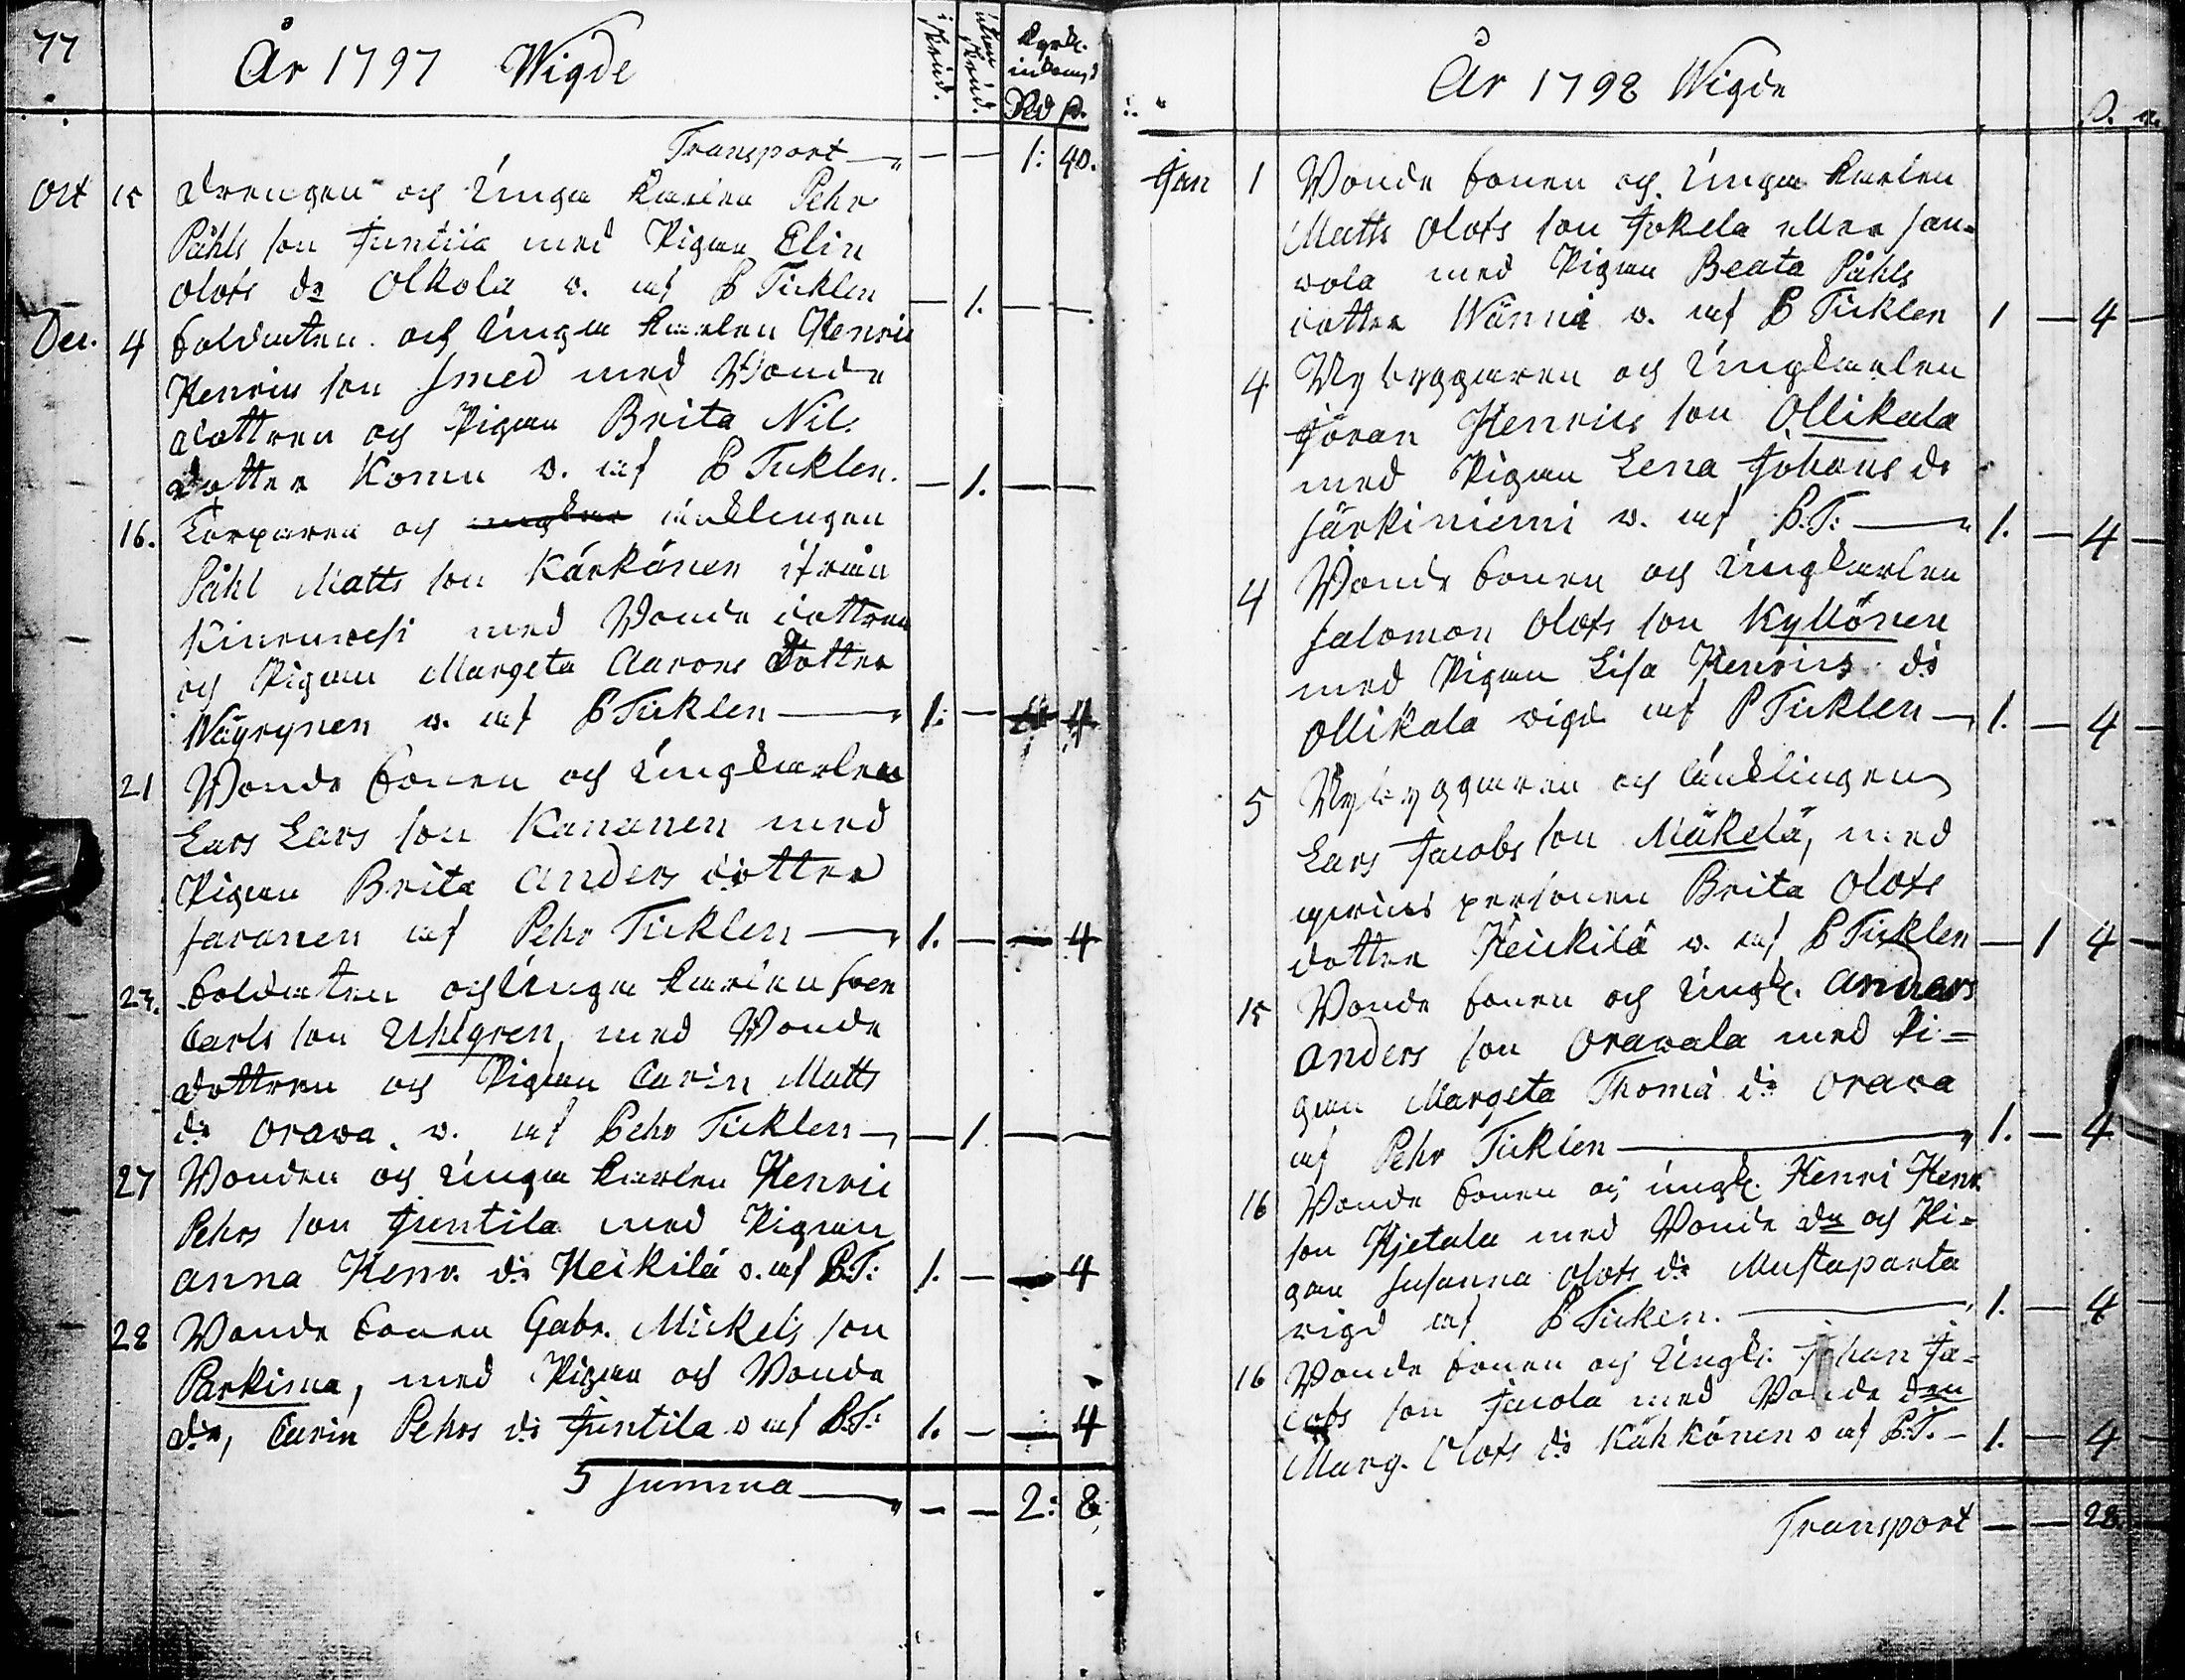 77
År 1797 Wigde
i skrud.
utan skrud.
Kyrk.
inkomst
Rd ß.
Transport — — 1: 40.
Oct 15 Drengen och Unga Karlen Pehr
Påhls son Juntiia med Pigan Elin
Olofs dr Olkola v. af P Ticklen — 1. — —
Dec. 4 Soldaten och Unga Karlen Henric
Henrics son Smed med Bonde
dottren och Pigan Brita Nils
dotter Komu v. af P Ticklen. — 1. — —
16. Torparen och ungkar änklingen
Påhl Matts son Kärkönen ifrån
med Bonde dottren
och Pigan Margeta Aarons Dotter
Wäyrynen v. af P Ticklen — 1. — 4
21 Bonde Sonen och Ungkarlen
Lars Lars son Kananen med
Pigan Brita Anders dotter
Saranen af Pehr Ticklen — 1. — — 4
27. Soldaten och Unga Karlen Sven
Carls son Uhlgren, med Bonde
dottren och Pigan Carin Matts
dr Orawa. v. af Pehr Ticklen — — 1 — —
27 Bonden och Unga Karlen Henric
Pehrs son Juntila med Pigan
Anna Henr. dr Heikilä v. af P.T: 1. — — 4
28 Bonde Sonen Gabr. Mickels son
Parkima, med Pigan och Bonde
dr, Carin Pehrs dr Juntila v af P.T: 1. — — 4
5 Summa — — — 2: 8.
År 1798 Wigde
ß. r.
Jan 1 Bonde Sonen och Unga Karlen
Matts Olofs son Jokela eller Jan-
wola med Pigan Beata Påhls
dotter Wänni v. af P Ticklen 1 — 4 —
4 Nybyggaren och Ungkarlen
Jöran Henrics son Ollikala
med Pigan Lena Johans dr
Särkiniemi v. af P.T: — 1. — 4 —
4 Bonde Sonen och Ungkarlen
Salomon Olofs son Kyllönen
med Pigan Lisa Henrics dr
Ollikala vigd af P Ticklen — 1. — 4 —
5 Nybyggaren och änklingen
Lars Jacobs son Mäkelä, med
qwins personen Brita Olofs
dotter Heickilä v. af P Ticklen — 1 4 —
15 Bonde Sonen och Ungk. Anders
Anders son Orawala med Pi=
gan Margeta Thoma dr Orawa
af Pehr Ticklen — 1. — 4 —
16 Bonde Sonen och ungk. Henri Henr.
son Hjetala med Bonde dn och Pi=
gan Susanna Olofs dr Mustaparta
vigd af P Ticken. — 1. — 4
16 Bonde Sonen och Ungk. Johan Ja=
cobs son Jacola med Bonde den
Marg. Olofs dr Kähkönen v af P.T. — 1. — 4 —
Transport — — 28.